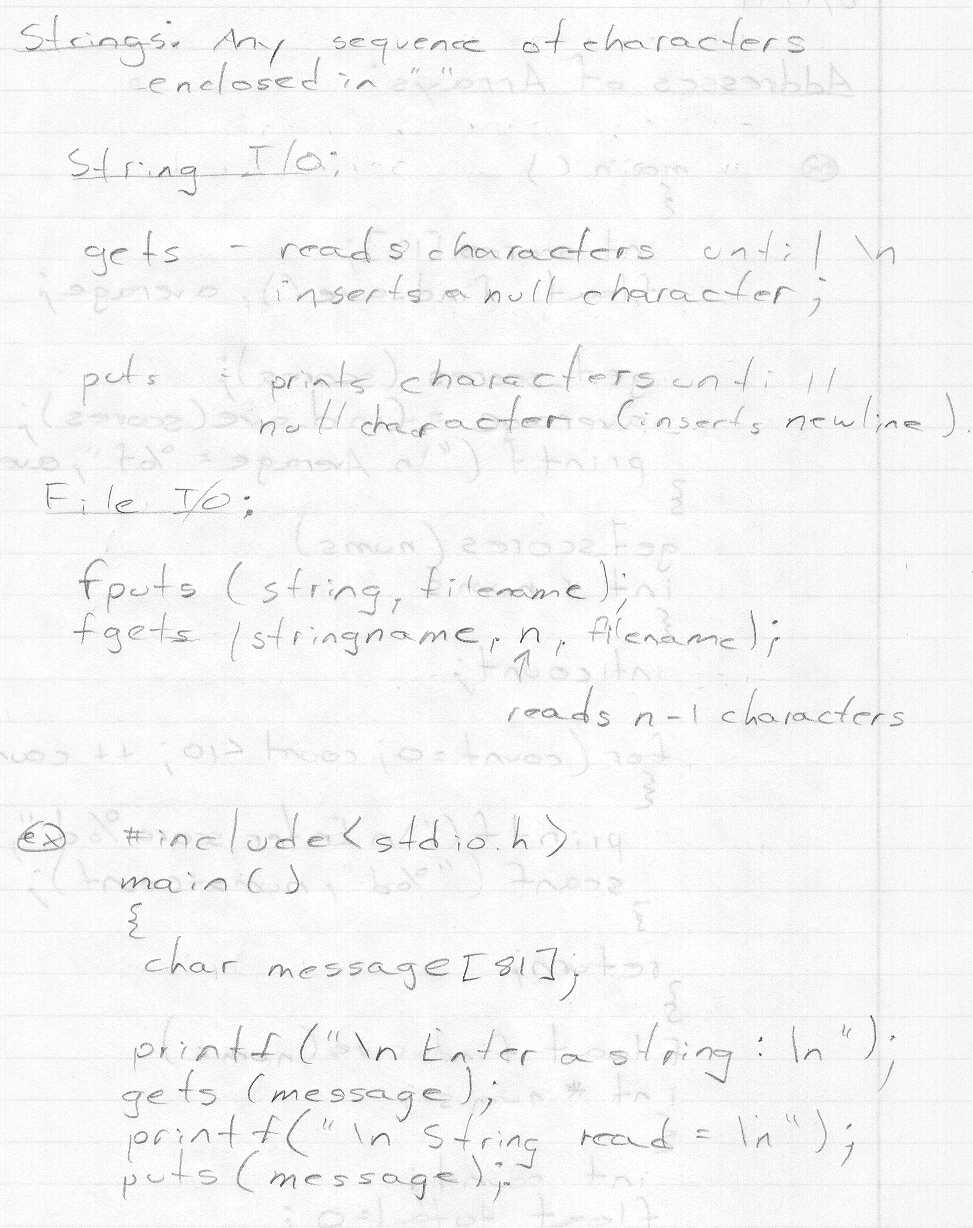 Strings: Any sequence of characters
enclosed in " "
String I/O:
gets - reads characters until \n
inserts a null character;
puts - prints characters until
null character (inserts newline).
File I/O:
fputs (string, filename);
fgets (stringname, n, filename);
reads n-1 characters
ex #include<stdio.h>
main()
{
char message[81];
printf("\n Enter a string : \n");
gets (message);
printf("\n String read = \n");
puts (message);